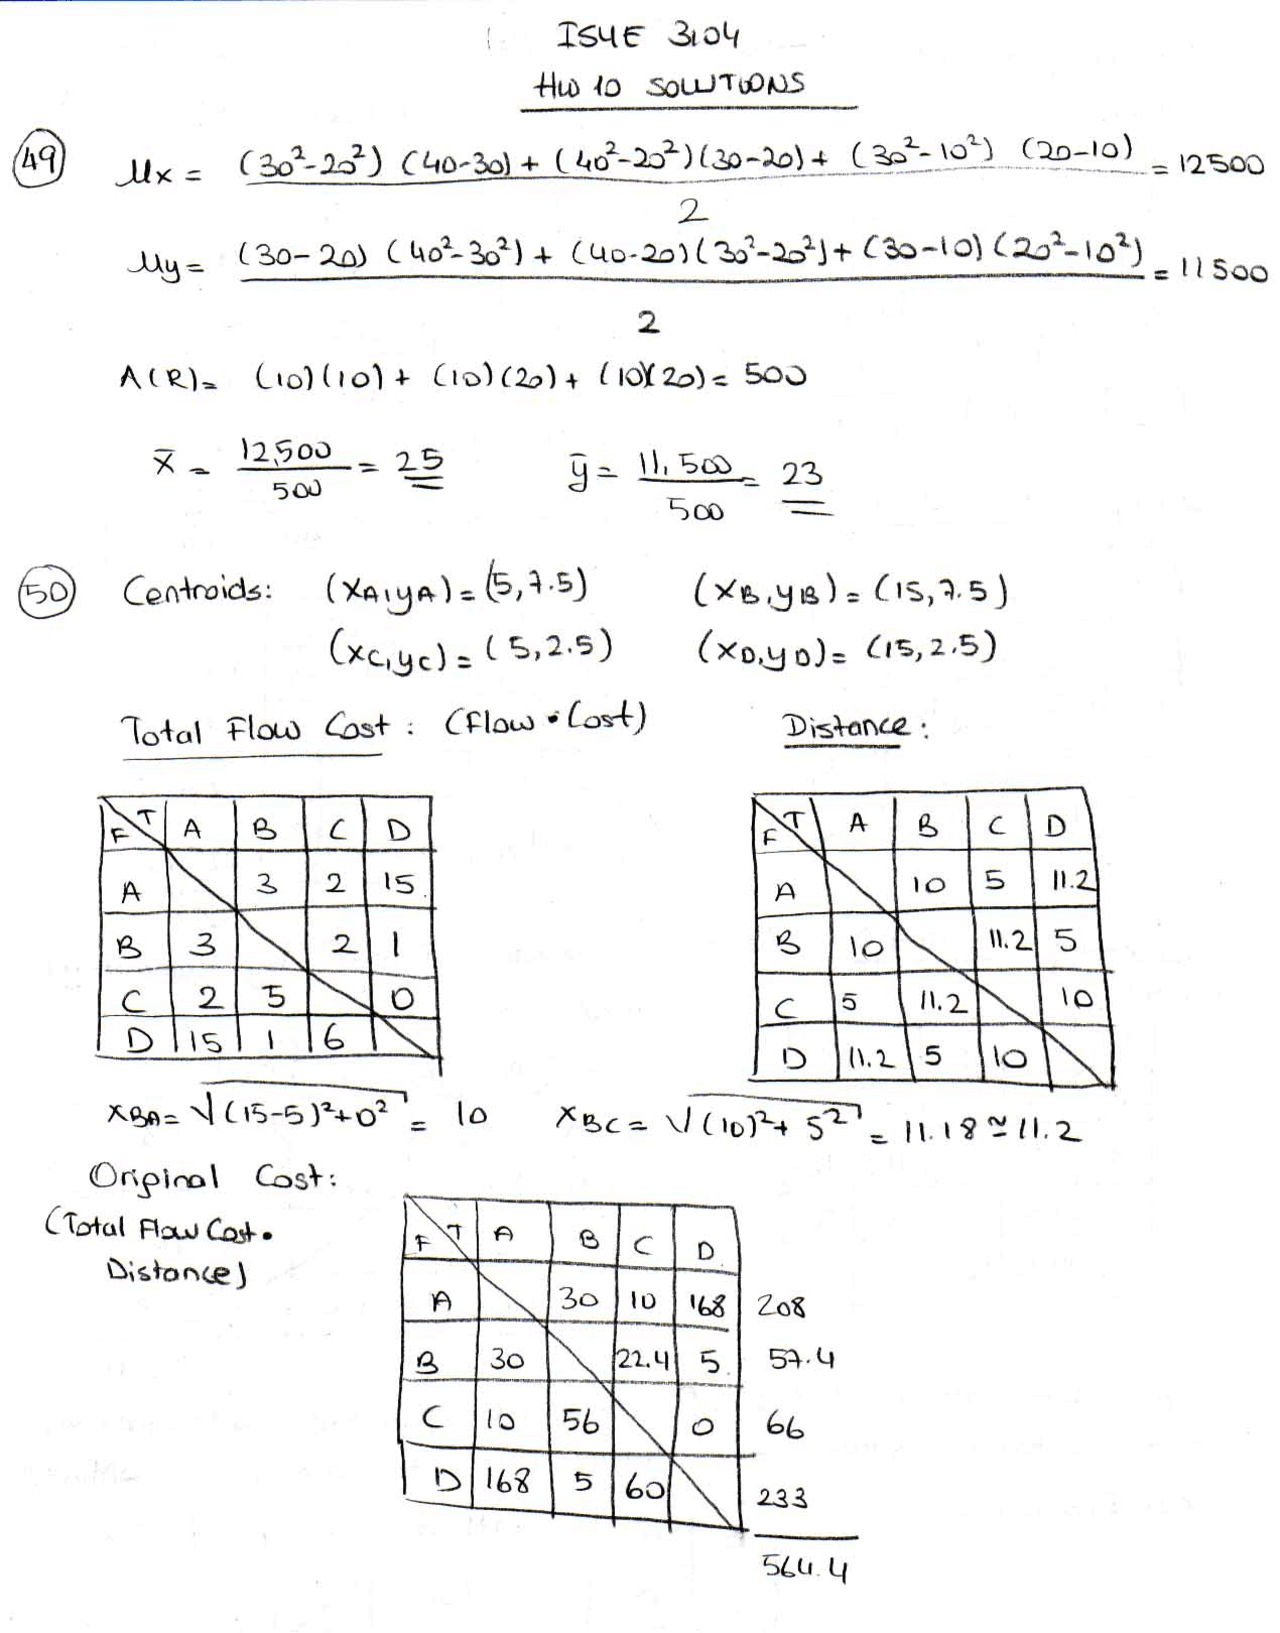 ISYE 3104
HW 10 SOLUTIONS
49
Mx = (30²-20²) (40-30) + (40²-20²)(30-20) + (30²-10²) (20-10) = 12500
2
My = (30-20) (40²-30²) + (40-20)(30²-20²) + (30-10) (20²-10²) = 11500
2
A(R) = (10)(10) + (10)(20) + (10)(20) = 500
x̄ = 12,500 / 500 = 25 ȳ = 11,500 / 500 = 23
50 Centroids: (xA,yA) = (5,7.5) (xB,yB) = (15,7.5)
(xC,yC) = (5,2.5) (xD,yD) = (15,2.5)
Total Flow Cost : (Flow • Cost) Distance :
F T A B C D
A 3 2 15
B 3 2 1
C 2 5 0
D 15 1 6
F T A B C D
A 10 5 11.2
B 10 11.2 5
C 5 11.2 10
D 11.2 5 10
xBA = √(15-5)²+0² = 10 xBC = √(10)²+5² = 11.18 ≅ 11.2
Original Cost:
(Total Flow Cost •
Distance)
F T A B C D
A 30 10 168 208
B 30 22.4 5 57.4
C 10 56 0 66
D 168 5 60 233
564.4